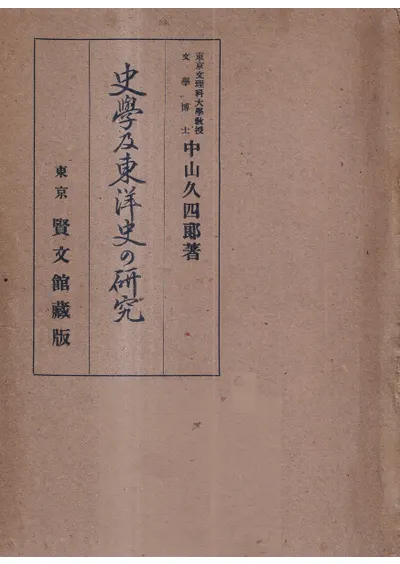 東京文理科大學敎授
文學博士
中山久四郞著
史學及東洋史の研究
東京 賢文館藏版